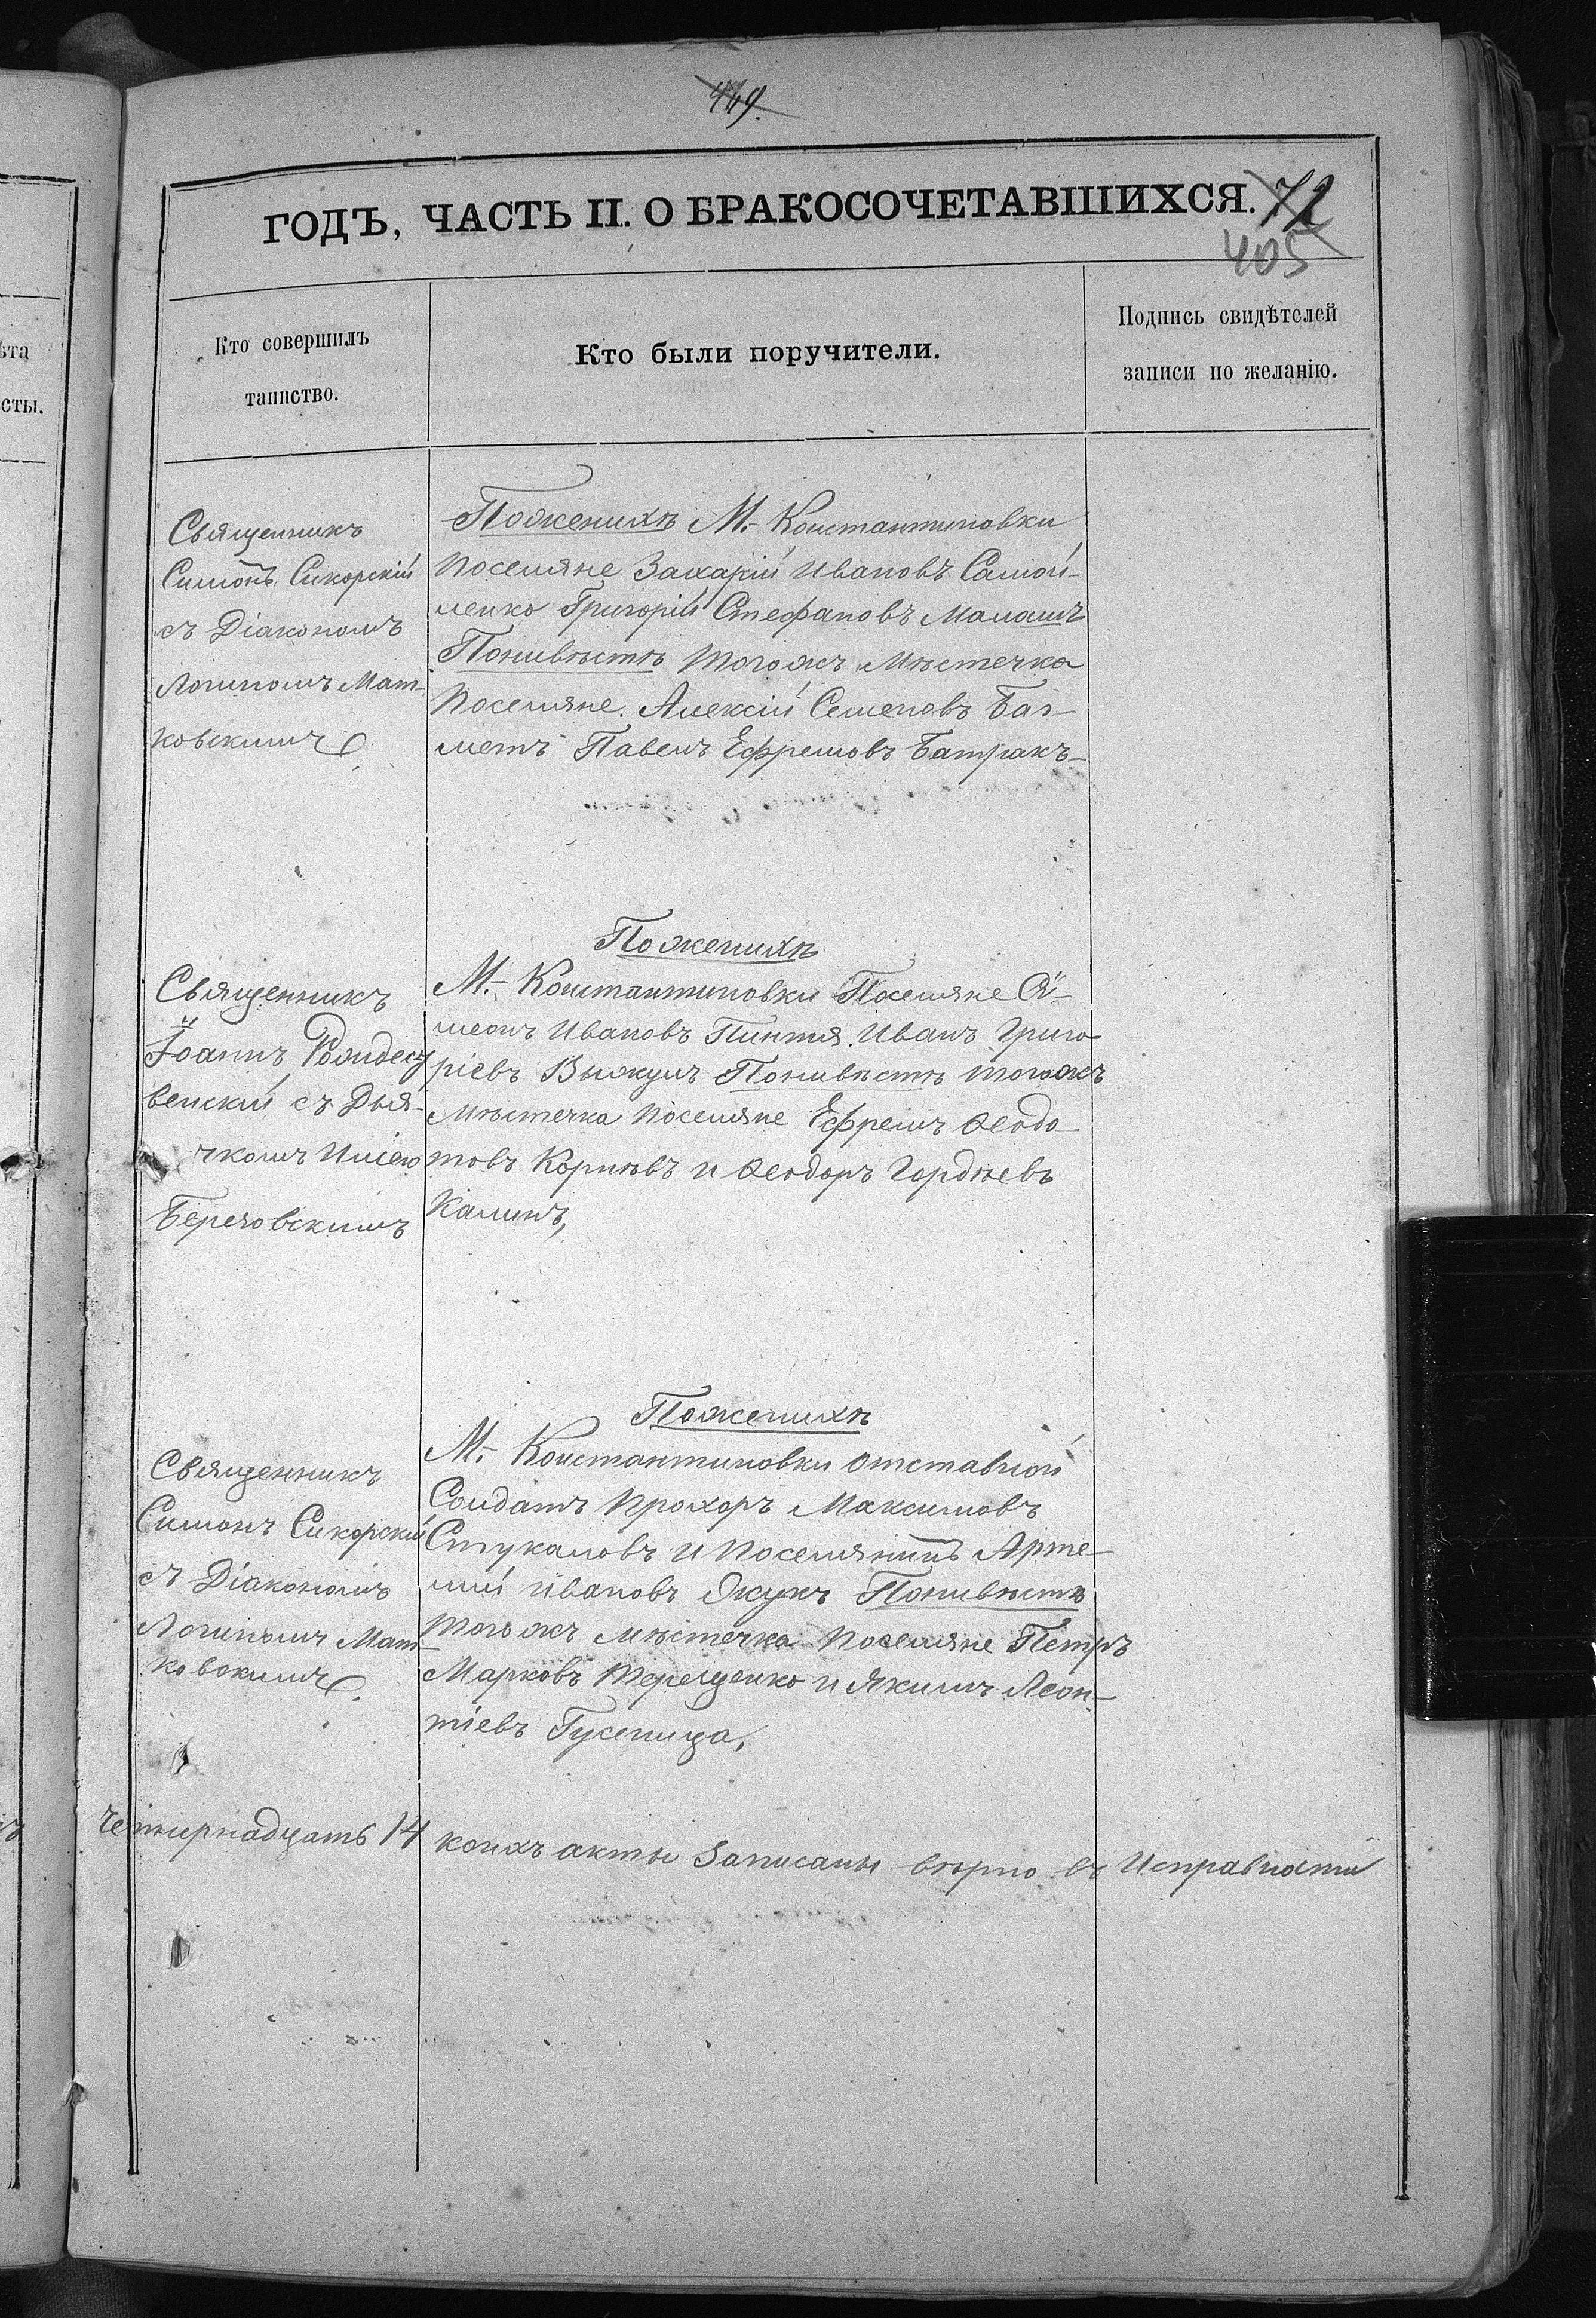 469.
ГОДЪ, ЧАСТЬ II. О БРАКОСОЧЕТАВШИХСЯ. 72
405
Кто совершилъ
таинство.
Кто были поручители.
Подпись свидѣтелей
записи по желанію.
ѣта
сты.
Священникъ
Симонъ Сикорскій
съ Діакономъ
Логиномъ Мат-
ковскимъ
Поженихѣ М.- Константиновки
поселяне Захарій Ивановъ Самой-
ленко Григорій Стефановъ Малашъ
Поневѣстѣ тогожъ мѣстечка
Поселяне. Алексій Семеновъ Баг-
метъ Павелъ Ефремовъ Батракъ-
Священникъ
Іоаннъ
венскій съ Дья-
чкомъ Иліею
Березовскимъ
Поженихѣ
М.- Константиновки Поселяне Сѵ-
меонъ Ивановъ Пинтя Иванъ Григо
ріевъ Поневѣстѣ тогожъ
мѣстечка поселяне Ефремъ Ѳеодо
товъ Корнѣвъ и Ѳеодоръ Гордѣевъ
Калинъ,
Священникъ
Симонъ Сикорскій
съ Діакономъ
Логиномъ Мат-
ковскимъ.
Поженихѣ
М.- Константиновки отставной
Солдатъ Прохоръ Максимовъ
Стукаловъ и поселянинъ Арте-
мій Ивановъ Якукъ Поневѣстѣ
тогожъ мѣстечка поселяне Петръ
Марковъ Терещенко и Якимъ Леон-
тіевъ Гусеница,
Четырнадцать 14 коихъ акты записаны вѣрно въ исправности